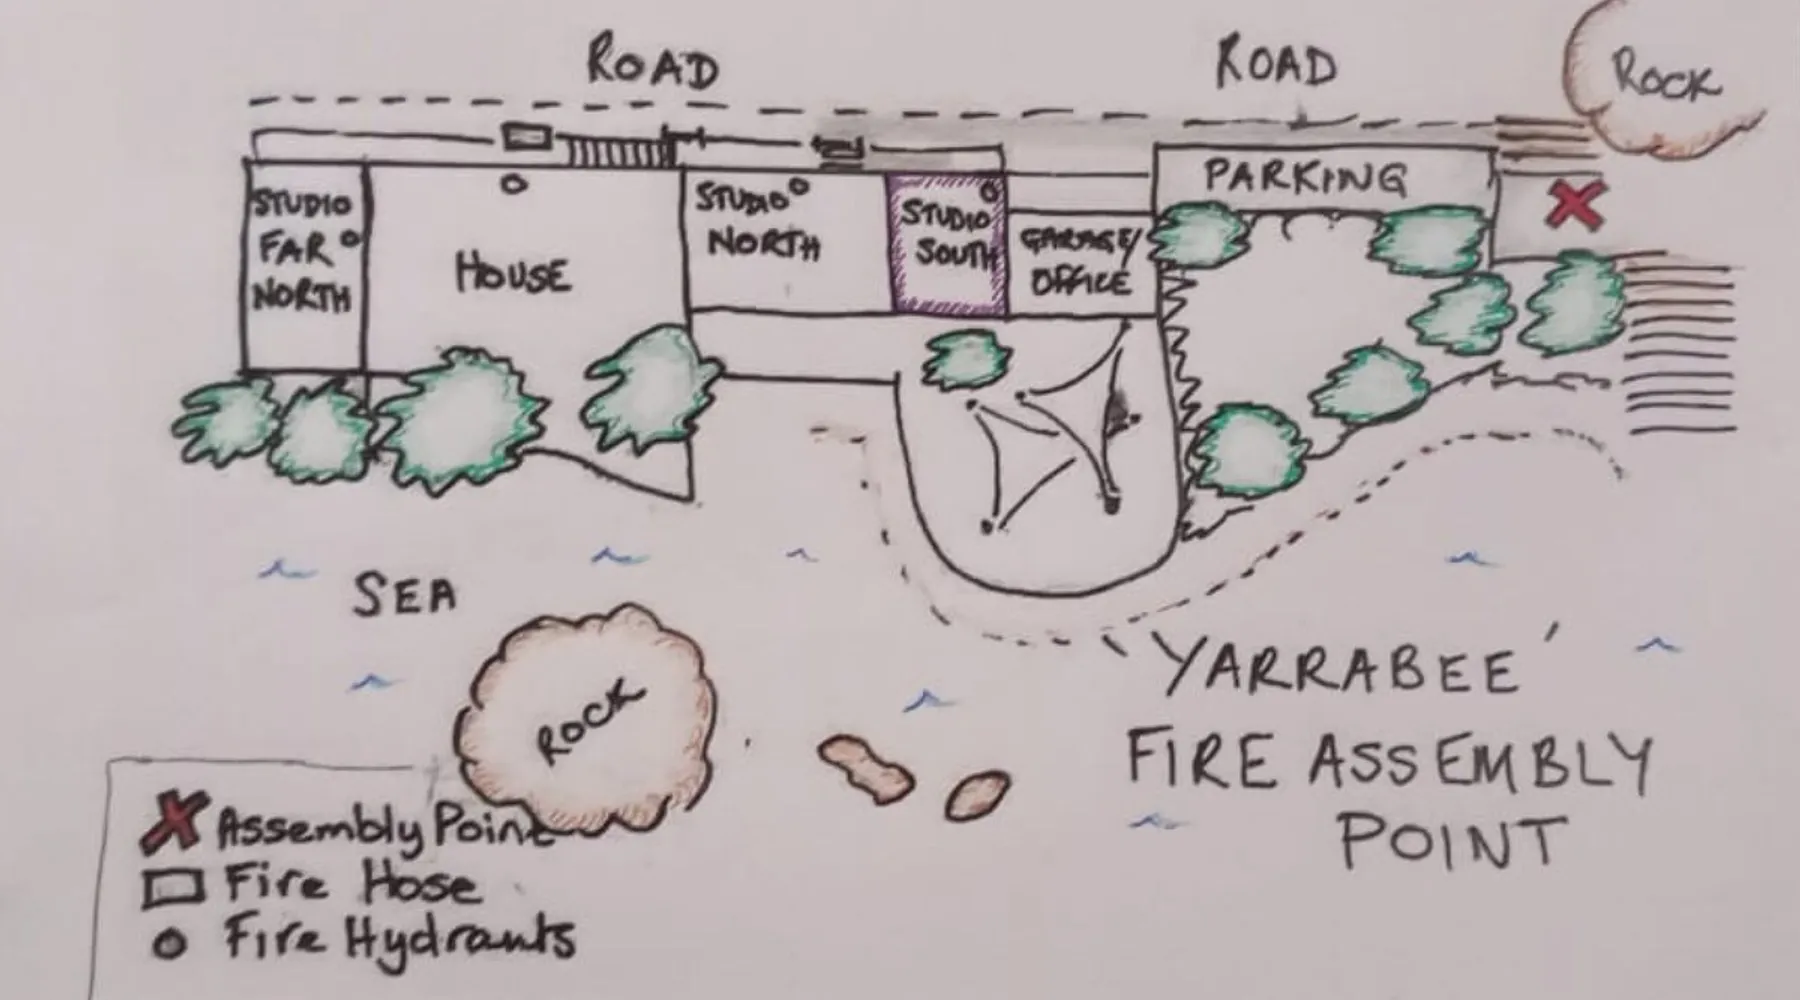 ROAD
ROAD
ROCK
PARKING
STUDIO
FAR
NORTH
HOUSE
STUDIO
NORTH
STUDIO
SOUTH
GARAGE/
OFFICE
SEA
ROCK
'YARRABEE'
FIRE ASSEMBLY
POINT
Assembly Point
Fire Hose
Fire Hydrants